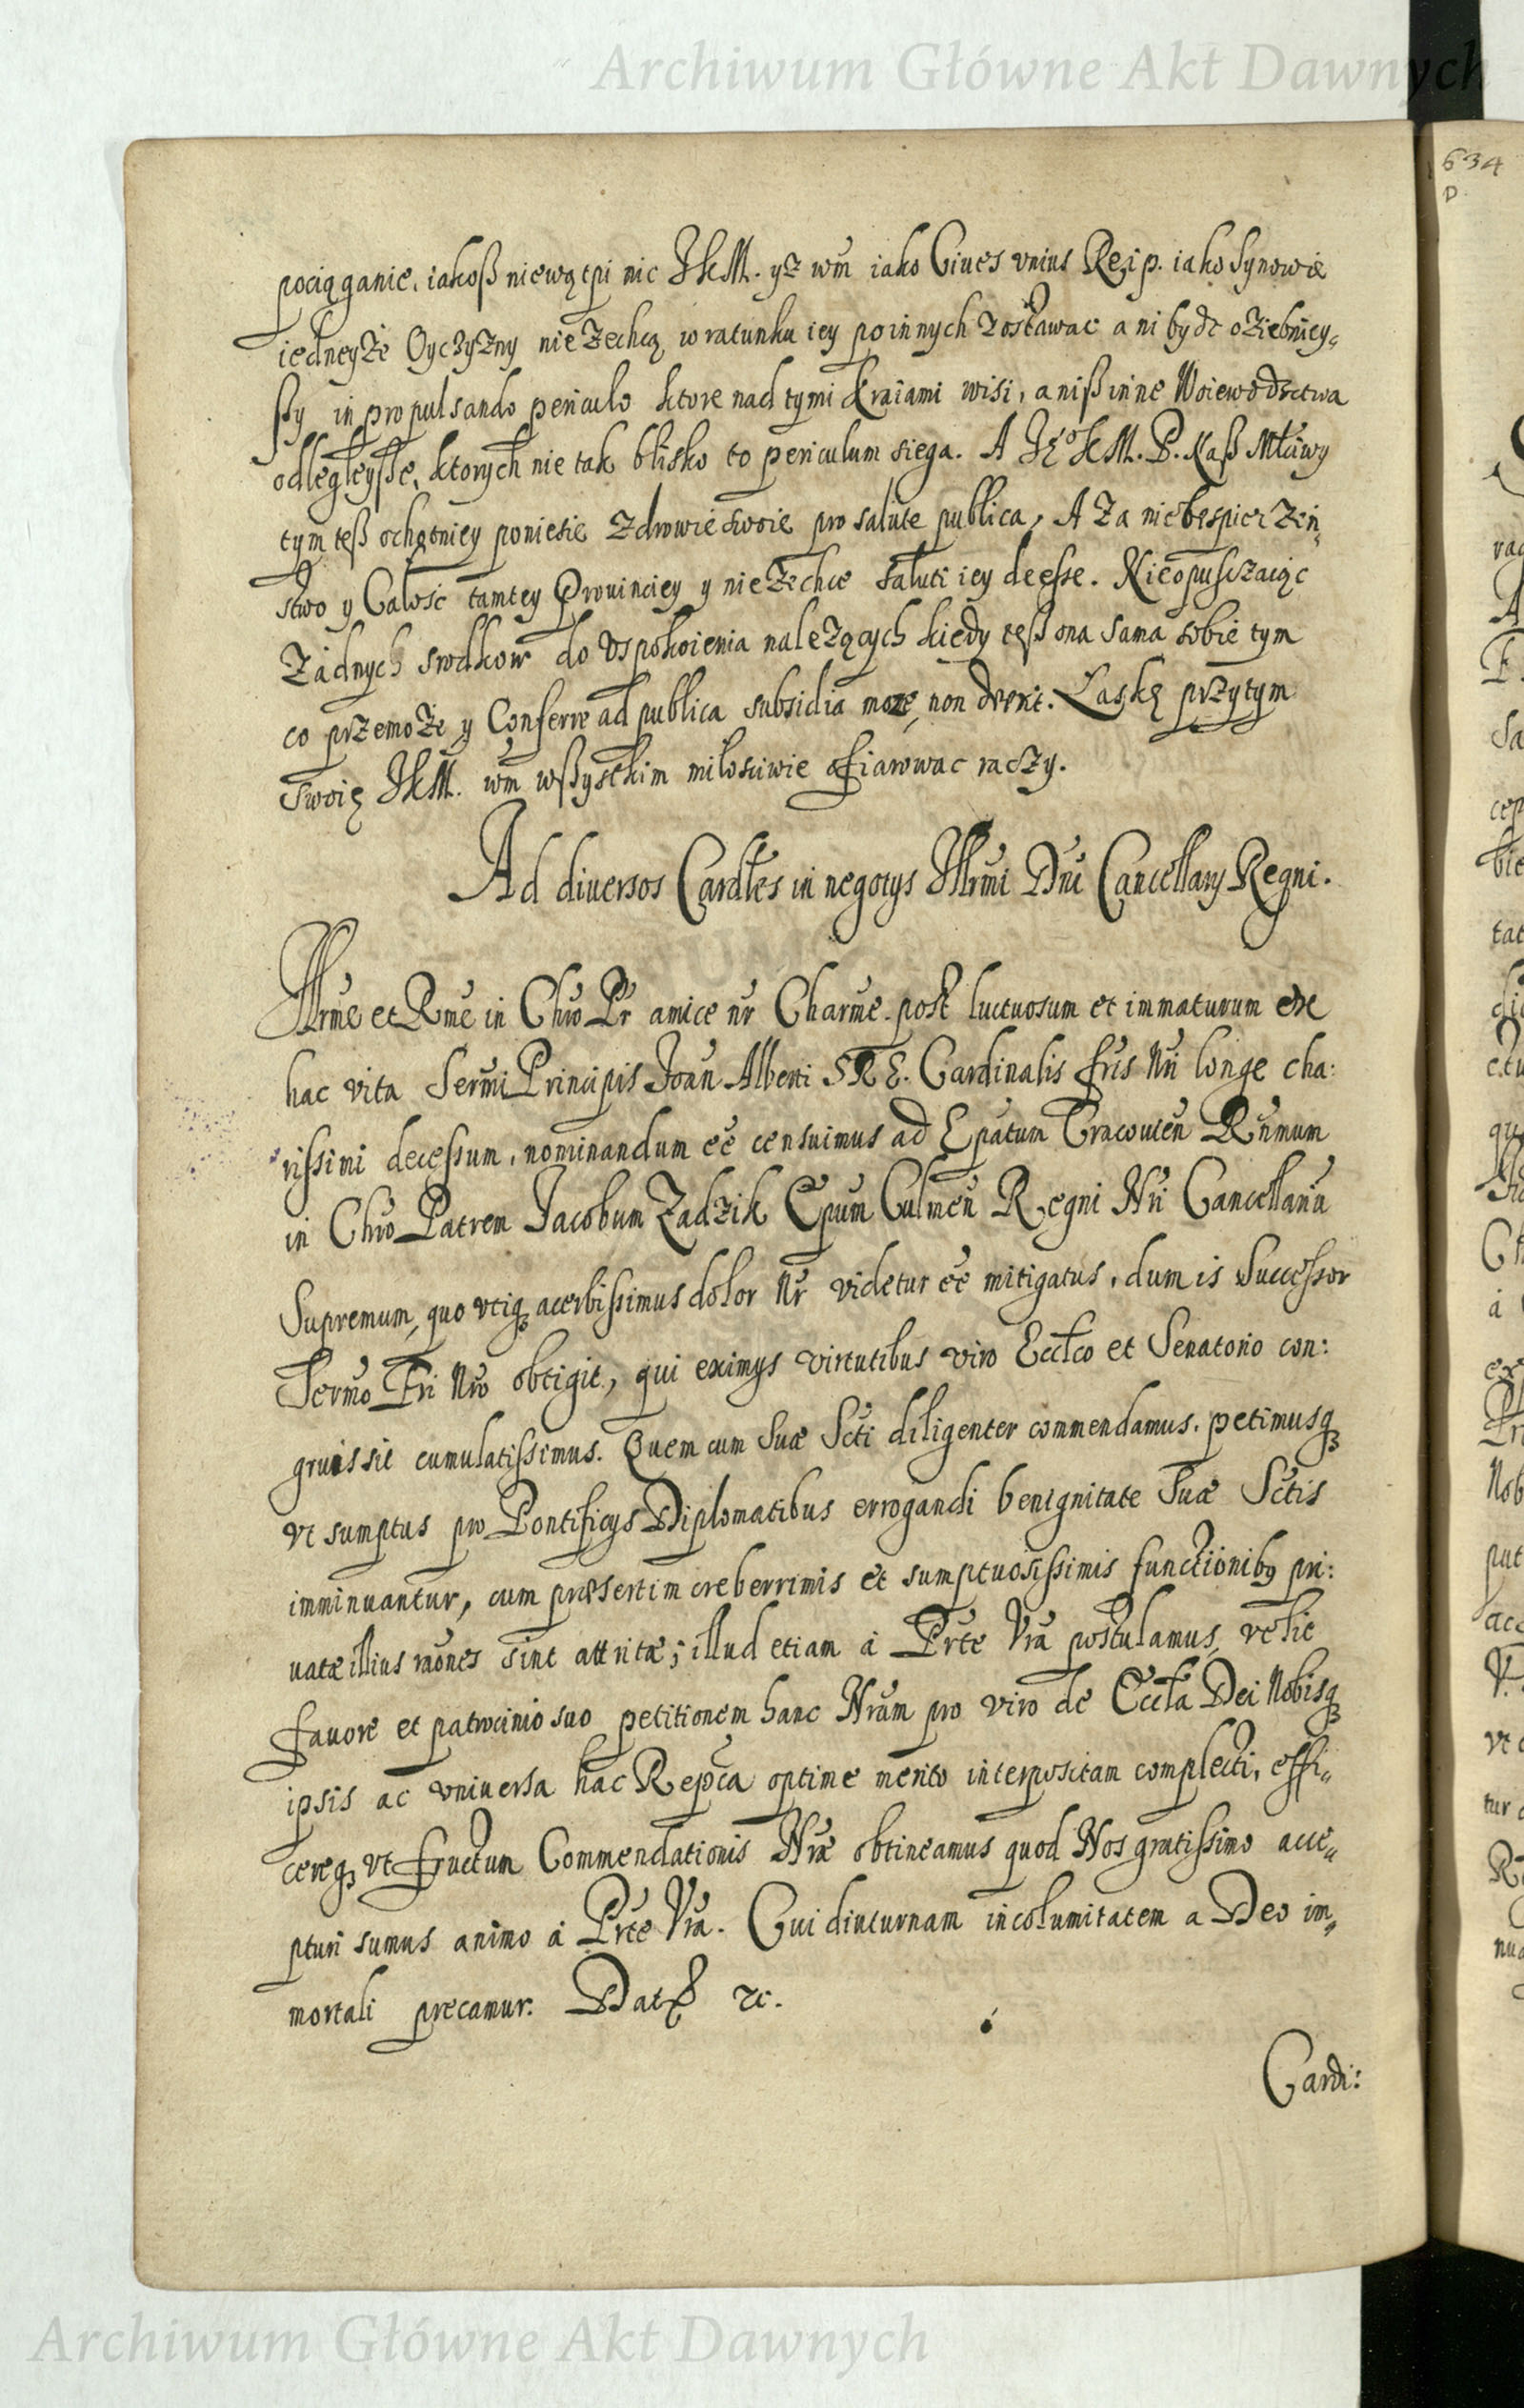 Archiwum Główne Akt Dawnych
634
D.
pociąganie, iakoß niewątpi nic JkM. yż wm iako Ciues vnius Reip. iako Synowie
iedneyże Oyczyzny nie zechcą w ratunku iey poinnych zostawac ani bydz oziebniey„
ßy in propulsando periculo ktore nad tymi kraiami wisi, anißinne Woiewodztwa
odlegleyße, ktorych nie tak blisko to periculum siega. A Jego kM. P. Naß Mławy
tym teß ochotniey poniesie zdrowie swoie pro salute publica, A za niebespieczen„
stwo y Całosc tamtey Prouinciey y nie zechce saluti iey deesse. Nieopusczaiąc
żadnych srodkow do uspokoienia należących kiedy teß ona sama sobie tym
co przemoże y Conferre ad publica subsidia może, non deerit. Łaskę przytym
swoię JkM. wm wßystkim miłosciwie ofiarowac raczy.
Ad diuersos Cardłes in negotys Illrmi Dni Cancellary Regni.
Illrme et Rme in Chro Pr amice nr Charme. post luctuosum et immaturum ex
hac vita Sermi Principis Joan Alberti S R E. Cardinalis fris Nri longe cha:
rissimi decessum, nominandum eē censuimus ad Epatum Cracouien Rnmum
in Chro Patrem Jacobum Zadzik Epum Culmen Regni Nri Cancellariū
Supremum, quo vtiq acerbissimus dolor Nr videtur eē mitigatus, dum is Successor
Sermo Fri Nro obtigit, qui eximys virtutibus viro Eccłco et Senatorio con:
gruis sit cumulatissimus. Quem cum Suæ Scti diligenter commendamus, petimusq
vt sumptus pro Pontificys Diplomatibus errogandi benignitate Suæ Sctis
imminuantur, cum præsertim creberrimis et sumptuosissimis functionibq pri:
uatæ illius raones sint attritæ; illud etiam a Prte Vra postulamus, velit
fauore et patrocinio suo petitionem hanc Nram pro viro de Eccła Dei Nobisq
ipsis ac vniuersa hac Repca optime merito interpositam complecti, effi„
cereq vt fructum Commendationis Nræ obtineamus quod Nos gratissimo acce„
pturi sumus animo á Prte Vra. Cui diuturnam incolumitatem a Deo im„
mortali precamur. Dat &c.
Cardi:
Archiwum Główne Akt Dawnych